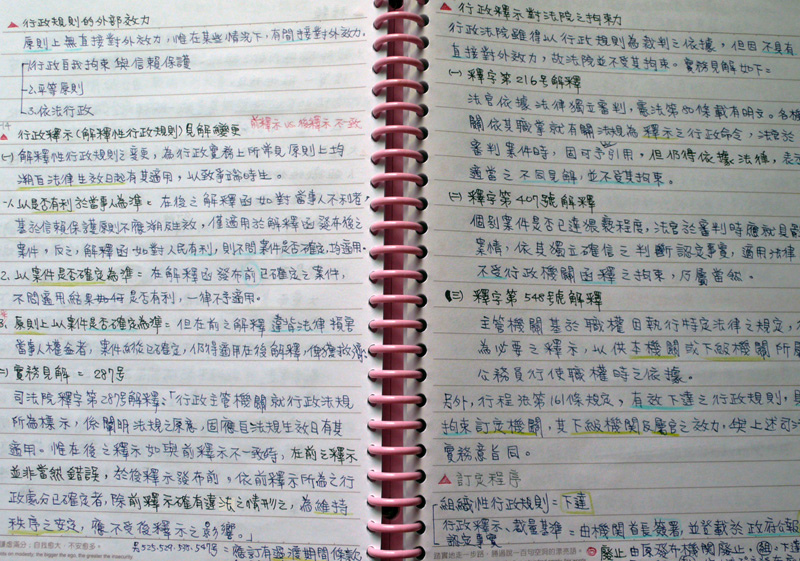 ▲ 行政規則的外部效力
原則上無直接對外效力,惟在某些情況下,有間接對外效力.
1.行政自我拘束與信賴保護
2.平等原則
3.依法行政
▲ 行政釋示(解釋性行政規則)見解變更 前釋示 後釋示 不一致
(一) 解釋性行政規則之變更,為行政實務上所常見原則上均
溯自法律生效日起有其適用,以致爭端時生。
1.以是否有利於當事人為準=在後之解釋函如對當事人不利者,
基於信賴保護原則不應溯及生效,僅適用於解釋函發布後之
案件,反之,解釋函如對人民有利,則不問案件是否確定,均適用.
2.以案件是否確定為準=在解釋函發布前已確定之案件,
不問適用結果如何是否有利,一律不適用。
3.原則上以案件是否確定為準=但在前之解釋違背法律損害
當事人權益者,案件雖已確定,仍得適用在後解釋,俾獲救濟
(二) 實務見解=287號
司法院釋字第287號解釋:「行政主管機關就行政法規
所為釋示,係闡明法規之原意,固應自法規生效日有其
適用。惟在後之釋示如與前釋示不一致時,在前之釋示
並非當然錯誤,於後釋示發布前,依前釋示所為之行
政處分已確定者,除前釋示確有違法之情形之,為維持
秩序之安定,應不受後釋示之影響。」
另525.529.535.547號=應訂有過渡期間條款
謙虛滿分;自我極大,不安愈多。
▲ 行政釋示對法院之拘束力
行政法院雖得以行政規則為裁判之依據,但因不具有
直接對外效力,故法院並不受其拘束。實務見解如下=
(一) 釋字第216號解釋
法官依據法律獨立審判,憲法第80條載有明文。各機
關依其職掌就有關法規為釋示之行政命令,法官於
審判案件時,固可予引用,但仍得依據法律,表示
適當之不同見解,並不受其拘束。
(二) 釋字第407號解釋
個別案件是否已達猥褻程度,法官於審判時應就具體
案情,依其獨立確信之判斷認定事實,適用法律
不受行政機關函釋之拘束,乃屬當然。
(三) 釋字第548號解釋
主管機關基於職權因執行特定法律之規定,得
為必要之釋示,以供本機關或下級機關所屬
公務員行使職權時之依據。
另外,行程法第161條規定,有效下達之行政規則,具
拘束訂定機關,其下級機關及屬官之效力,與上述司法
實務意旨同。
▲ 訂定程序
組織性行政規則=下達
行政釋示、裁量基準=由機關首長簽署,並登載於政府公報
認定事實
廢止 由原發布機關廢止,